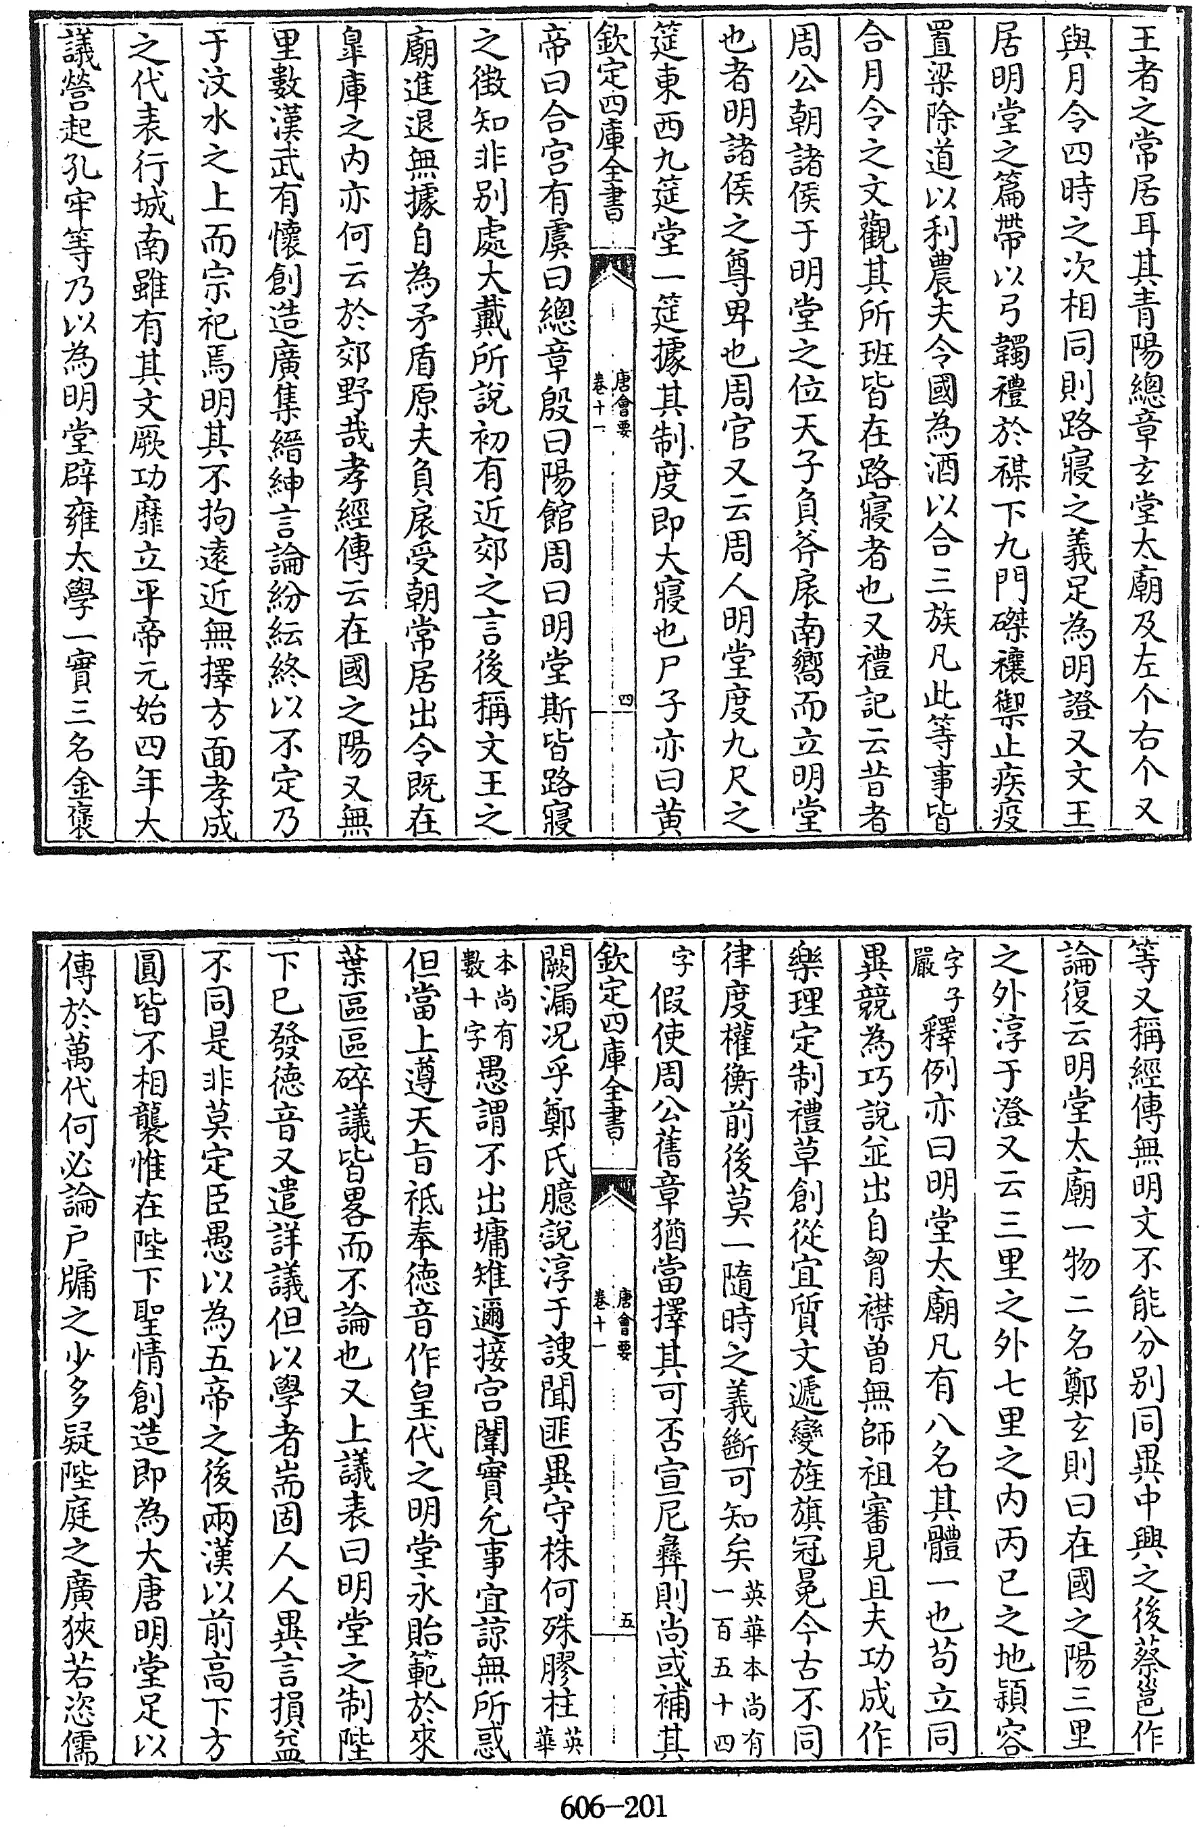 王者之常居耳其青陽總章玄堂太廟及左个右个又
與月令四時之次相同則路寢之義足為明證又文王
居明堂之篇帶以弓韣禮於禖下九門磔禳禦止疾疫
置梁除道以利農夫令國為酒以合三族凡此等事皆
合月令之文觀其所班皆在路寢者也又禮記云昔者
周公朝諸侯于明堂之位天子負斧扆南嚮而立明堂
也者明諸侯之尊卑也周官又云周人明堂度九尺之
筵東西九筵堂一筵據其制度即大寢也尸子亦曰黃
欽定四庫全書
唐會要
卷十一
四
帝曰合宮有虞曰總章殷曰陽館周曰明堂斯皆路寢
之徵知非別處大戴所說初有近郊之言後稱文王之
廟進退無據自為矛盾原夫負扆受朝常居出令既在
臯庫之内亦何云於郊野哉孝經傳云在國之陽又無
里數漢武有懷創造廣集縉紳言論紛紜終以不定乃
于汶水之上而宗祀焉明其不拘遠近無擇方面孝成
之代表行城南雖有其文厥功靡立平帝元始四年大
議營起孔牢等乃以為明堂辟雍太學一實三名金襃
等又稱經傳無明文不能分别同異中興之後蔡邕作
論復云明堂太廟一物二名鄭玄則曰在國之陽三里
之外淳于澄又云三里之外七里之内丙巳之地穎容
字子嚴釋例亦曰明堂太廟凡有八名其體一也苟立同
異競為巧說並出自胷襟曾無師祖審見且夫功成作
樂理定制禮草創從宜質文遞變旌旗冠冕今古不同
律度權衡前後莫一隨時之義斷可知矣英華本尚有一百五十四
字假使周公舊章猶當擇其可否宣尼彝則尚或補其
欽定四庫全書
唐會要
卷十一
五
闕漏况乎鄭氏臆說淳于謏聞匪異守株何殊膠柱英華
本尚有數十字愚謂不出墉雉邇接宫闈實允事宜諒無所惑
但當上遵天旨祗奉德音作皇代之明堂永貽範於來
葉區區碎議皆畧而不論也又上議表曰明堂之制陛
下已發德音又遣詳議但以學者耑固人人異言損益
不同是非莫定臣愚以為五帝之後兩漢以前高下方
圓皆不相襲惟在陛下聖情創造即為大唐明堂足以
傳於萬代何必論戶牖之少多疑陛庭之廣狹若恣儒
606-201